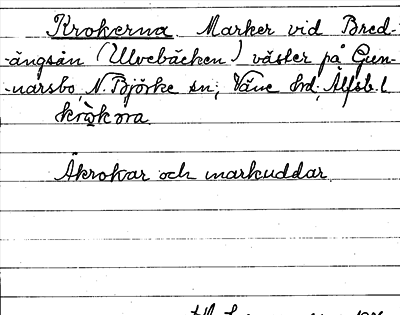 Krokerna Marker vid Bred-
-ängsån (Ulvebäcken) väster på Gun-
-narsbo, N. Björke sn; Väne hd; Älfsb. l.
kròkɷra
Åkrokar och markuddar